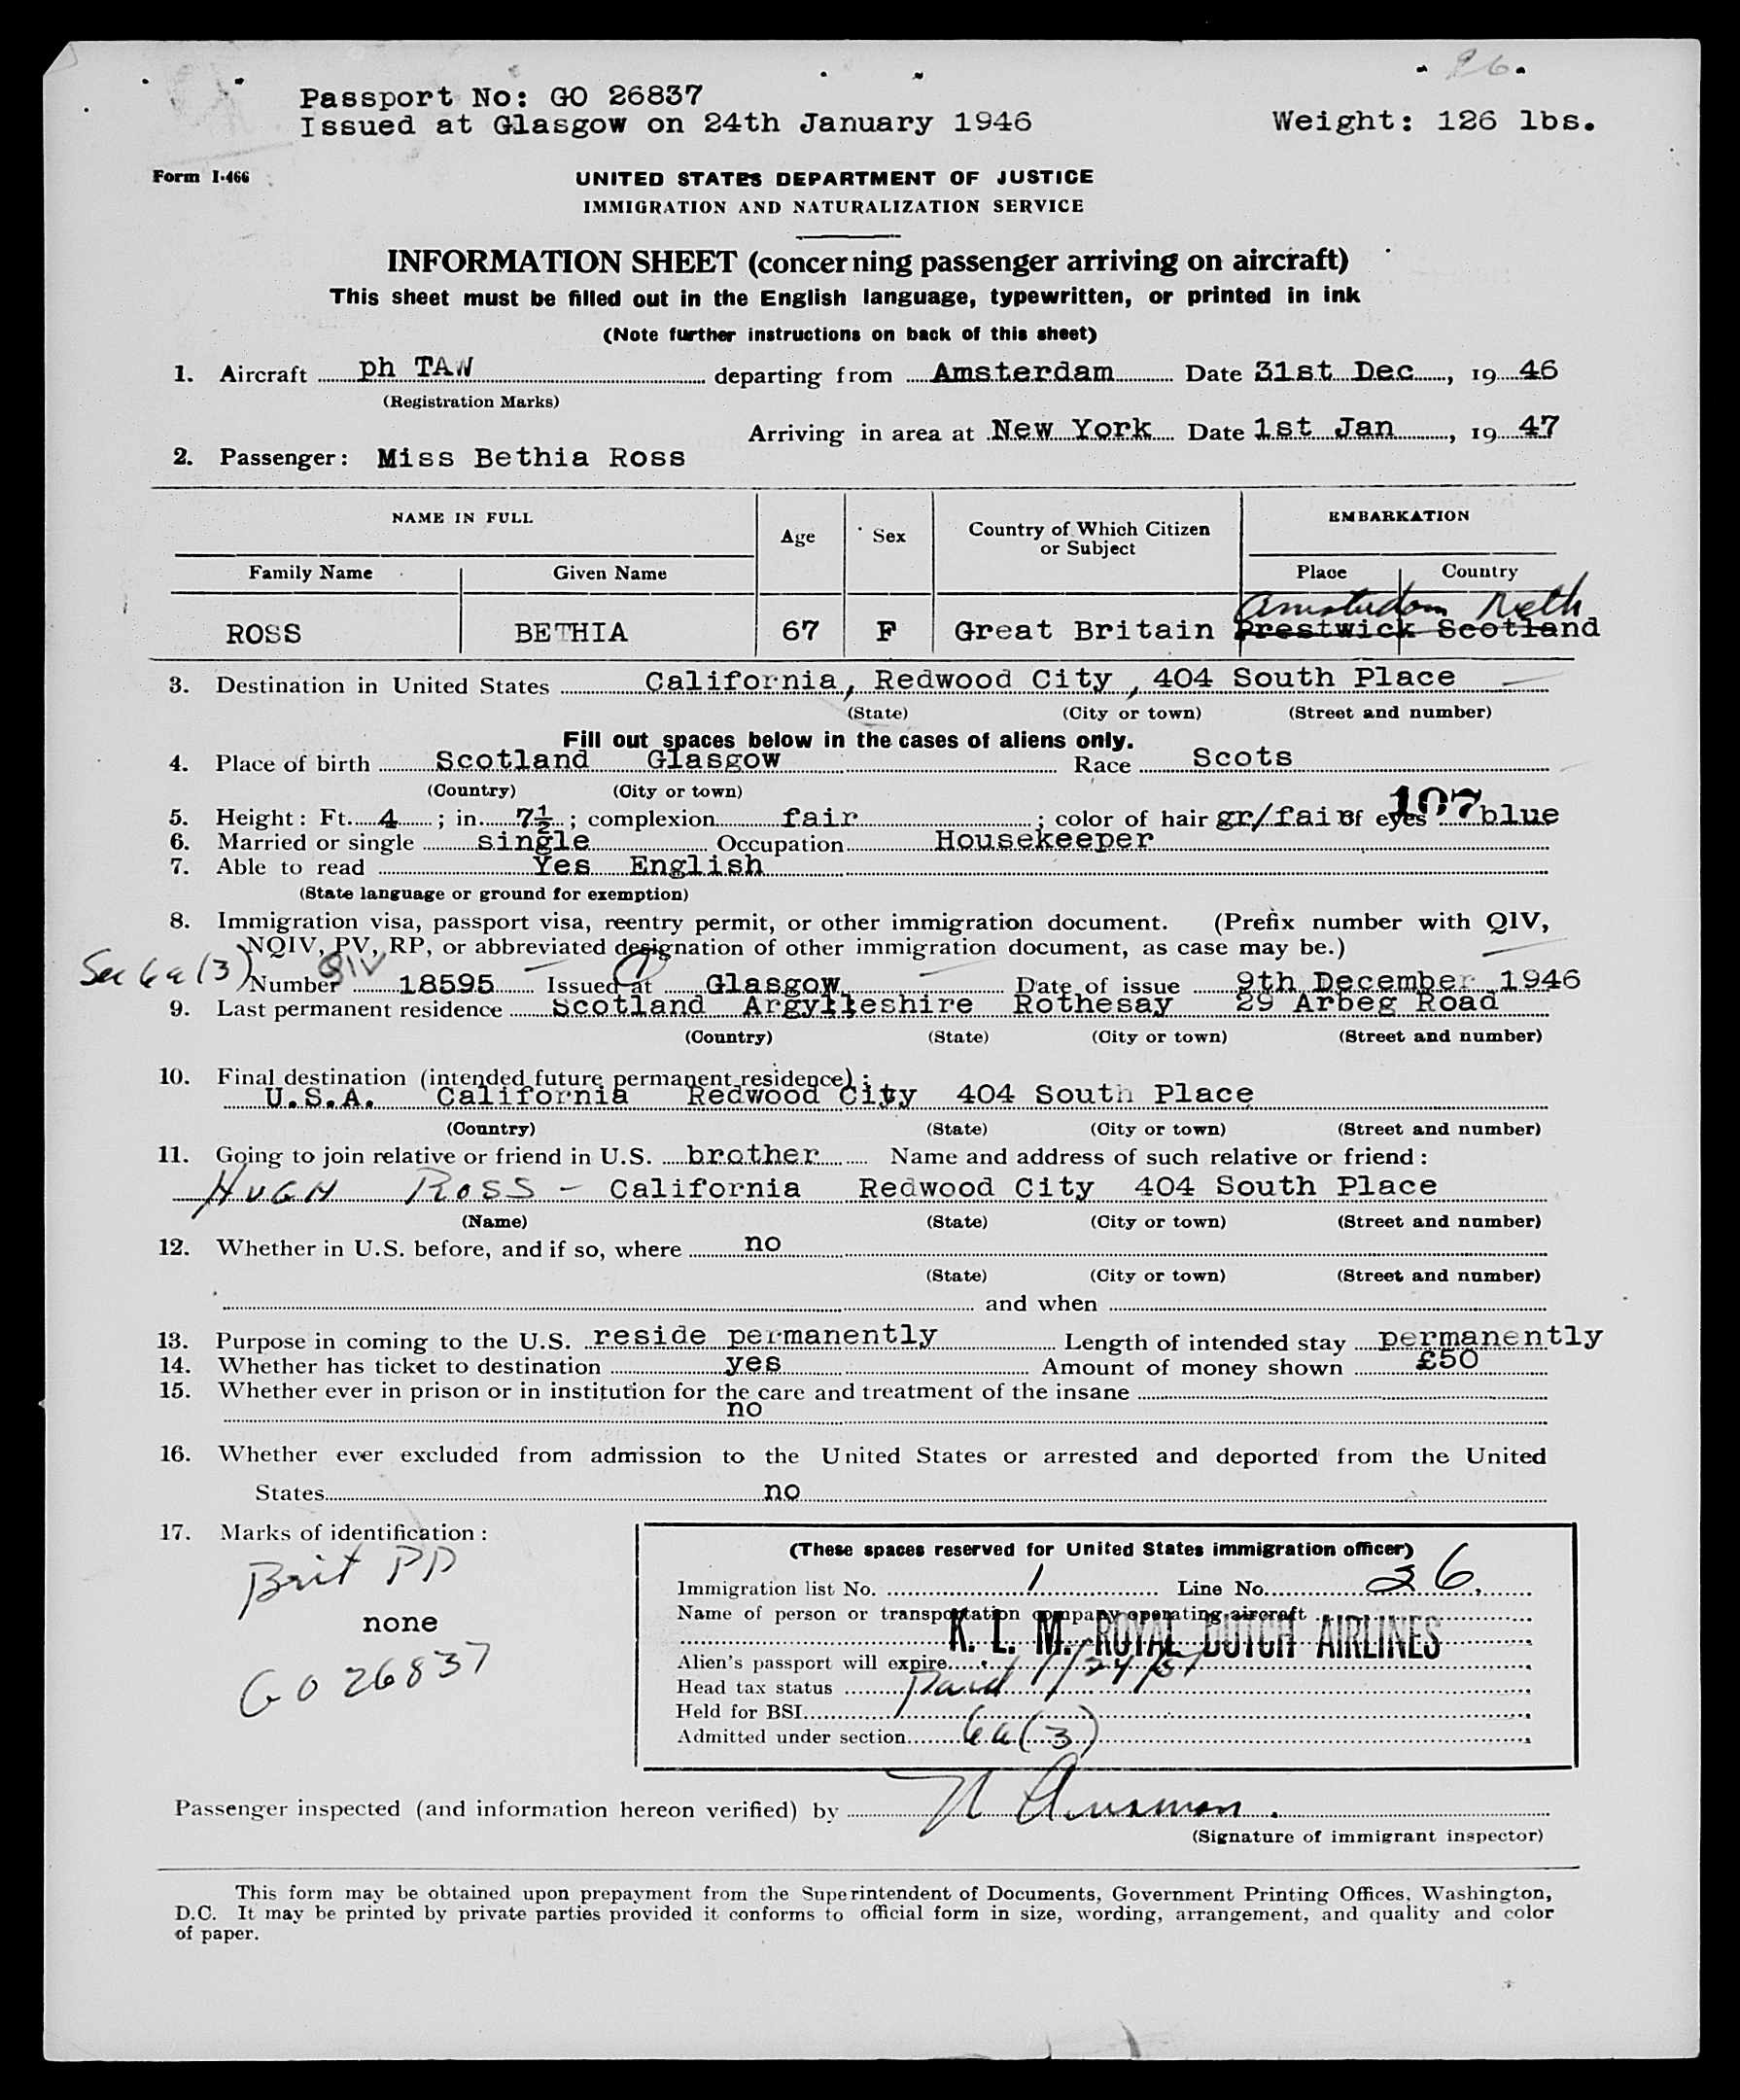 26.
Passport No: GO 26837
Issued at Glasgow on 24th January 1946 Weight: 126 lbs.
Form I-466
UNITED STATES DEPARTMENT OF JUSTICE
IMMIGRATION AND NATURALIZATION SERVICE
INFORMATION SHEET (concerning passenger arriving on aircraft)
This sheet must be filled out in the English language, typewritten, or printed in ink
(Note further instructions on back of this sheet)
1. Aircraft ph TAW departing from Amsterdam Date 31st Dec, 19 46
(Registration Marks)
Arriving in area at New York Date 1st Jan, 19 47
2. Passenger: Miss Bethia Ross
NAME IN FULL Age Sex Country of Which Citizen or Subject EMBARKATION
Family Name Given Name Place Country
Amsterdam Neth
ROSS BETHIA 67 F Great Britain Prestwick Scotland
3. Destination in United States California, Redwood City, 404 South Place
(State) (City or town) (Street and number)
Fill out spaces below in the cases of aliens only.
4. Place of birth Scotland Glasgow Race Scots
(Country) (City or town)
107
5. Height: Ft. 4; in. 7½; complexion fair; color of hair gr/fair of eyes blue
6. Married or single single Occupation Housekeeper
7. Able to read Yes English
(State language or ground for exemption)
8. Immigration visa, passport visa, reentry permit, or other immigration document. (Prefix number with QIV,
NQIV, PV, RP, or abbreviated designation of other immigration document, as case may be.)
Sec 6a(3) QIV
Number 18595 Issued at Glasgow Date of issue 9th December 1946
9. Last permanent residence Scotland Argylleshire Rothesay 29 Arbeg Road
(Country) (State) (City or town) (Street and number)
10. Final destination (intended future permanent residence):
U.S.A. California Redwood City 404 South Place
(Country) (State) (City or town) (Street and number)
11. Going to join relative or friend in U.S. brother Name and address of such relative or friend:
HUGH ROSS - California Redwood City 404 South Place
(Name) (State) (City or town) (Street and number)
12. Whether in U.S. before, and if so, where no
(State) (City or town) (Street and number)
and when
13. Purpose in coming to the U.S. reside permanently Length of intended stay permanently
14. Whether has ticket to destination yes Amount of money shown £50
15. Whether ever in prison or in institution for the care and treatment of the insane
no
16. Whether ever excluded from admission to the United States or arrested and deported from the United
States no
17. Marks of identification:
Brit PP
none
GO 26837
(These spaces reserved for United States immigration officer)
Immigration list No. 1 Line No. 26
Name of person or transportation company operating aircraft
K. L. M. ROYAL DUTCH AIRLINES
Alien's passport will expire 1/24/51
Head tax status Paid
Held for BSI
Admitted under section 6a(3)
Passenger inspected (and information hereon verified) by
(Signature of immigrant inspector)
This form may be obtained upon prepayment from the Superintendent of Documents, Government Printing Offices, Washington,
D.C. It may be printed by private parties provided it conforms to official form in size, wording, arrangement, and quality and color
of paper.